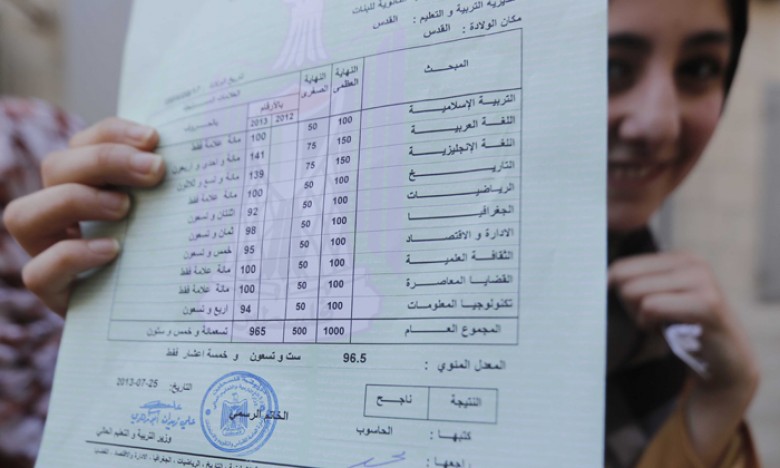 مديرية التربية و التعليم : القدس
مكان الولادة : القدس
المبحث النهاية العظمى النهاية الصغرى العلامات بالأرقام
2012 2013
التربية الإسلامية 100 50 100 مائة علامة فقط
اللغة العربية 150 75 141 مائة و احدى و اربعون
اللغة الإنجليزية 150 75 139 مائة و تسع و ثلاثون
التاريخ 100 50 100 مائة علامة فقط
الرياضيات 100 50 92 اثنتان و تسعون
الجغرافيا 100 50 98 ثمان و تسعون
الادارة و الاقتصاد 100 50 95 خمس و تسعون
الثقافة العلمية 100 50 100 مائة علامة فقط
القضايا المعاصرة 100 50 100 مائة علامة فقط
تكنولوجيا المعلومات 100 50 94 أربع و تسعون
المجموع العام 1000 500 965 تسعمائة و خمس و ستون
المعدل المئوي : 96.5 ست و تسعون و خمسة اعشار فقط
النتيجة ناجح
التاريخ: 25-07-2013
كتبها : الحاسوب
الخاتم الرسمي
وزير التربية و التعليم العالي
راجعها :
التاريخ ، الرياضيات ، الجغرافيا ، الادارة و الاقتصاد ، الثقافة